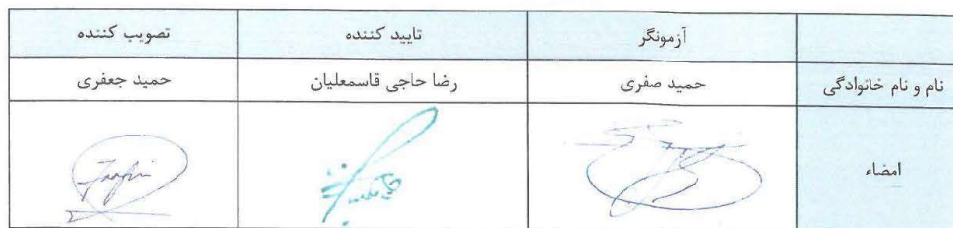 آزمونگر تایید کننده تصویب کننده
نام و نام خانوادگی حمید صفری رضا حاجی قاسمعلیان حمید جعفری
امضاء